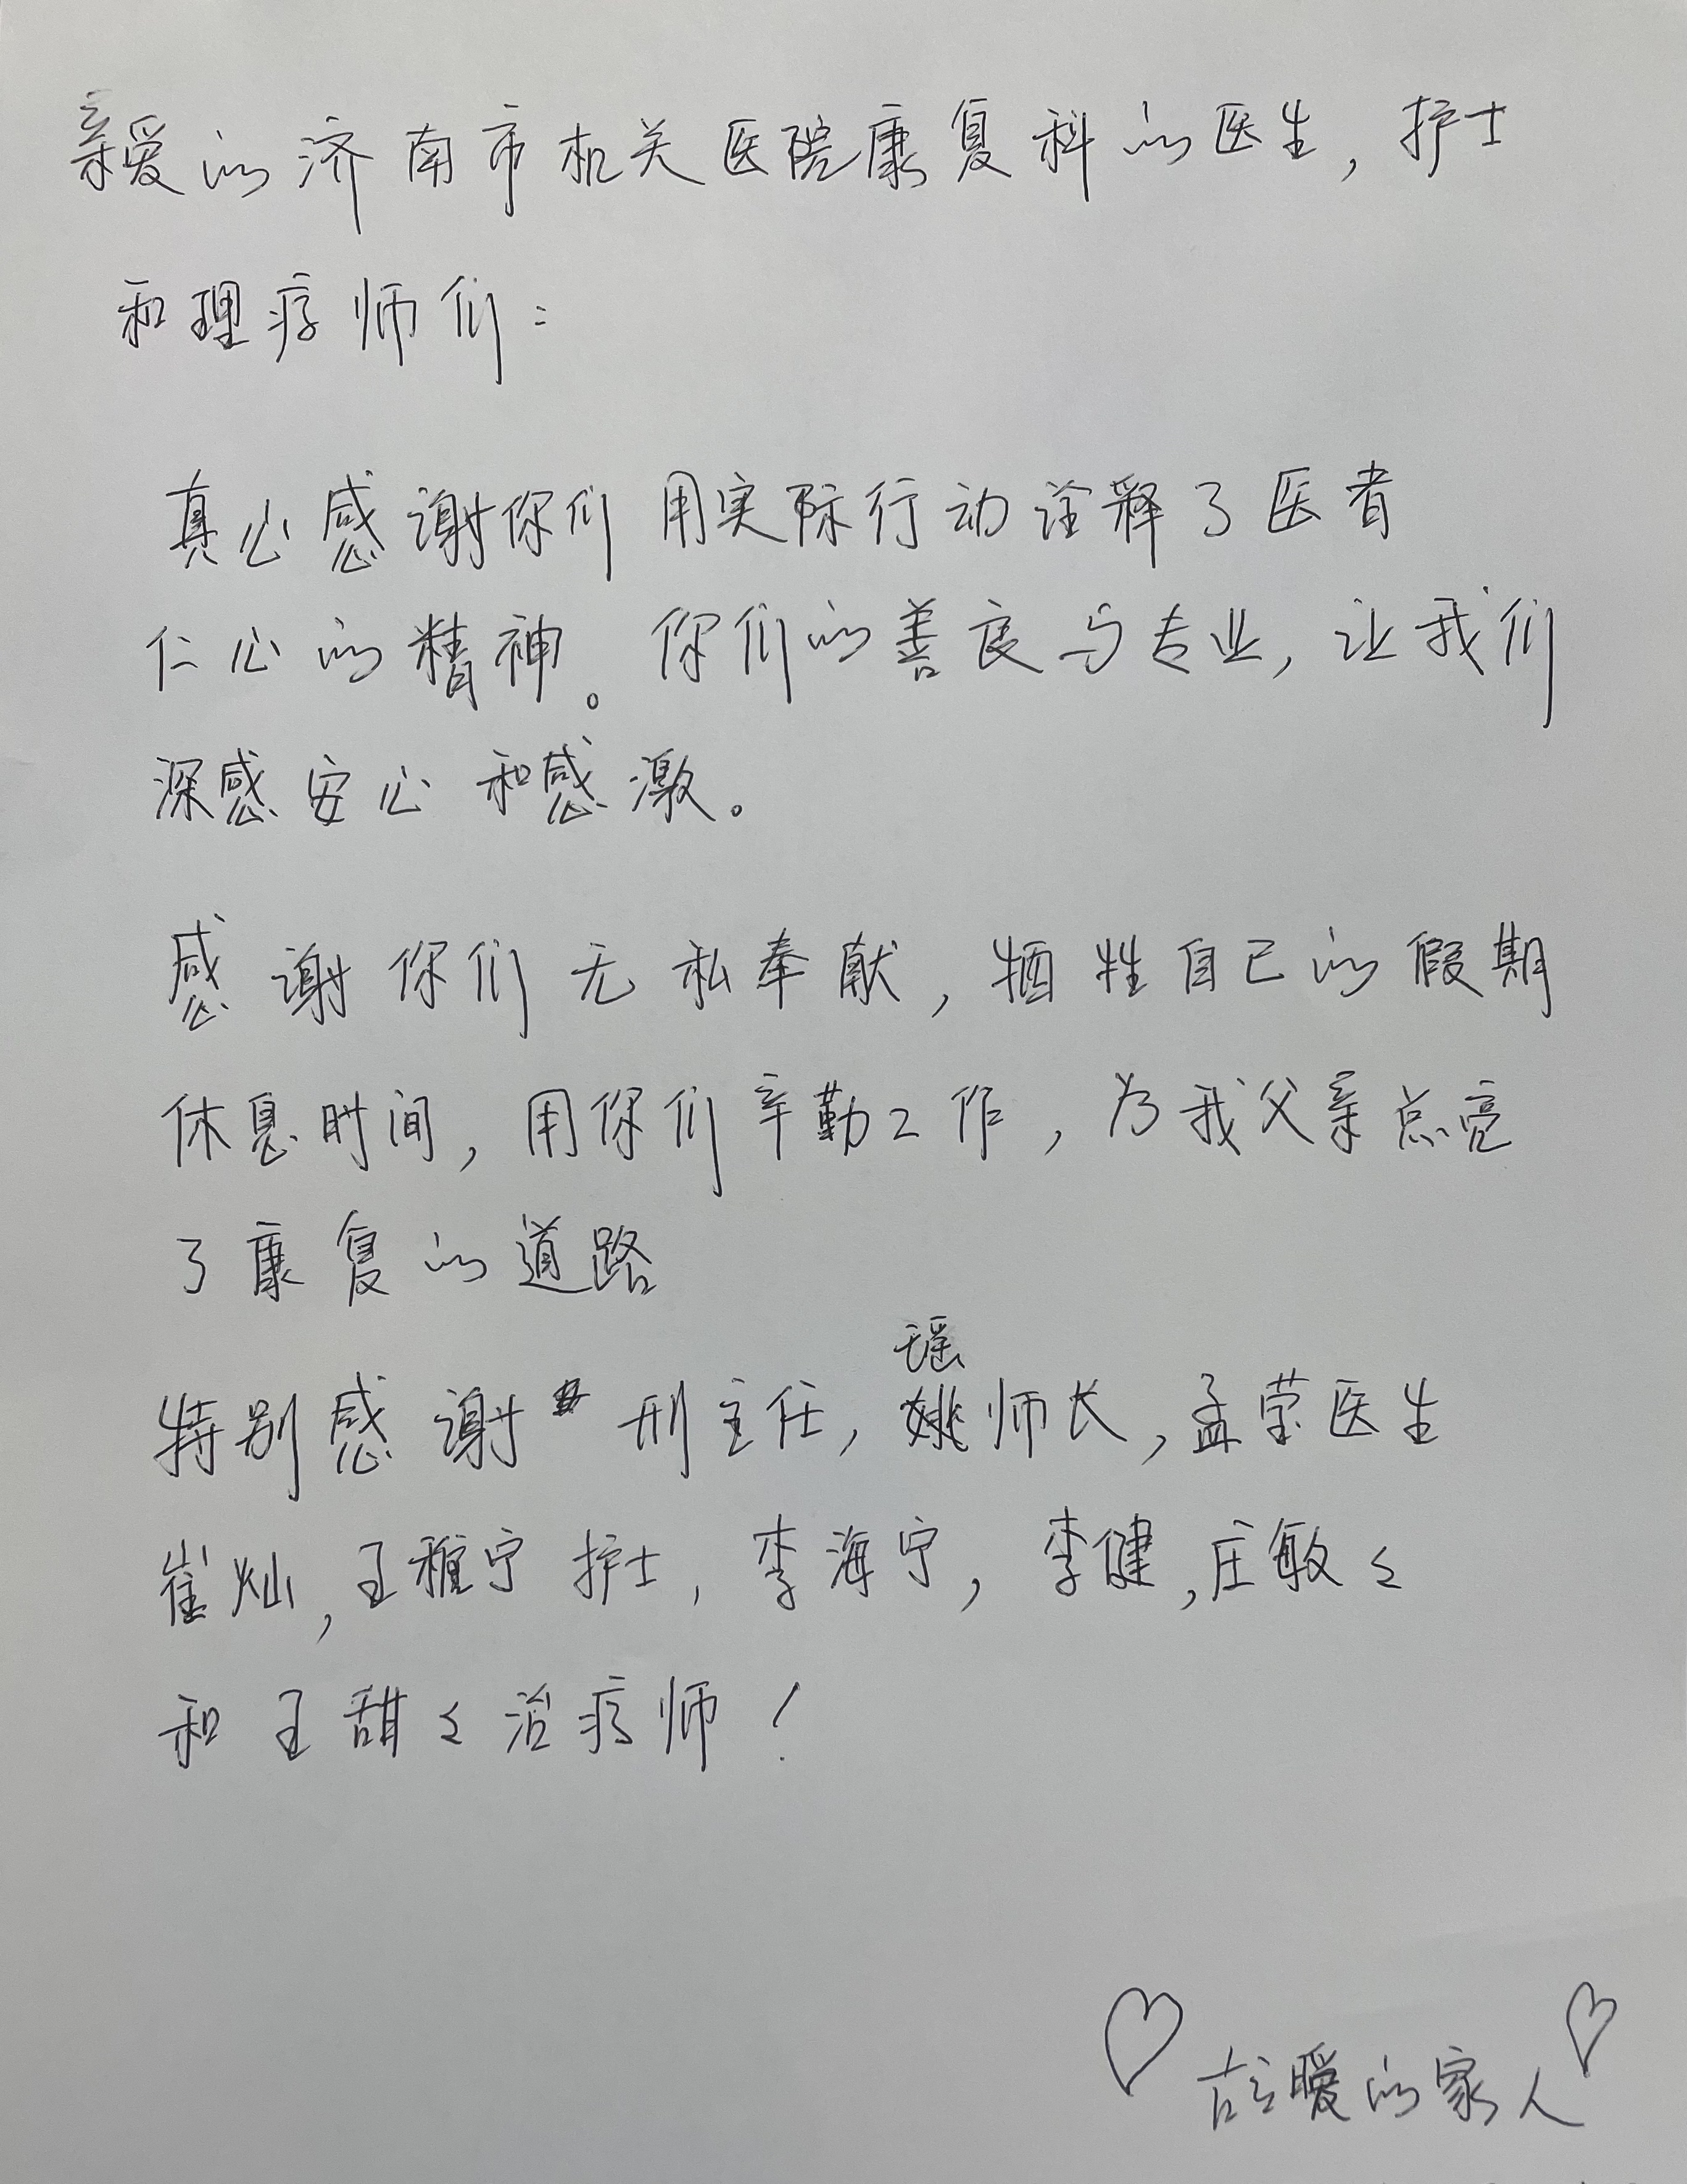 亲爱的济南市机关医院康复科的医生，护士
和理疗师们：
真心感谢你们用实际行动诠释了医者
仁心的精神。你们的善良与专业，让我们
深感安心和感激。
感谢你们无私奉献，牺牲自己的假期
休息时间，用你们辛勤工作，为我父亲点亮
了康复的道路
瑶
特别感谢刑主任，姚师长，孟莹医生
崔灿，王雅宁护士，李海宁，李健，庄敏々
和王甜々治疗师！
的家人